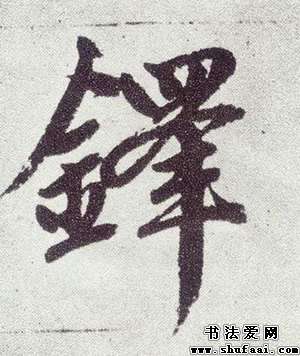 鐸
书法爱网
www.shufaai.com